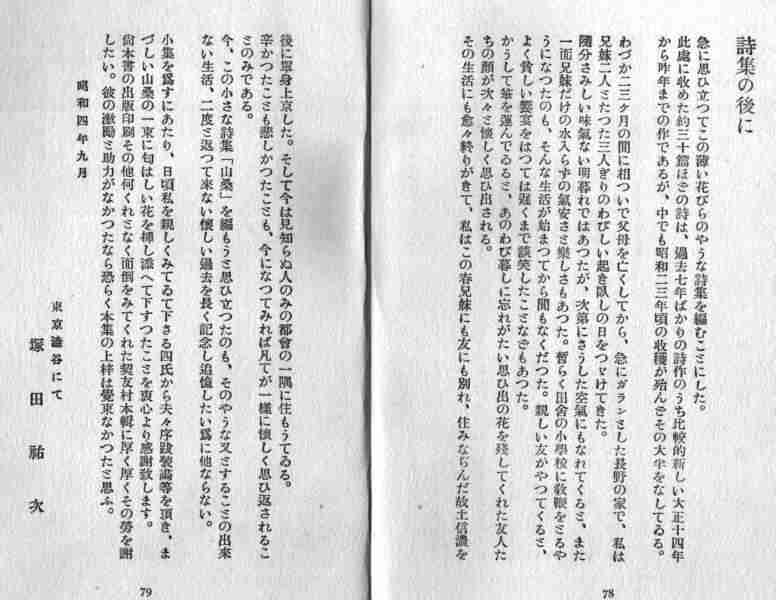 詩集の後に
急に思ひ立つてこの薄い花びらのやうな詩集を編むことにした。
此處に收めた約三十篇ほどの詩は、過去七年ばかりの詩作のうち比較的新しい大正十四年
から昨年までの作であるが、中でも昭和二三年頃の收穫が殆んどその大半をなしてゐる。
わづか二三ヶ月の間に相ついで父母を亡くしてから、急にガランとした長野の家で、私は
兄妹二人とたつた三人ぎりのわびしい起き臥しの日をつゞけてきた。
隨分さみしい味氣ない明暮れではあつたが、次第にさうした空氣にもなれてくると、また
一面兄妹だけの水入らずの氣安さと樂しさもあつた。暫らく田舍の小學校に敎鞭をとるや
うになつたのも、そんな生活が始まつてから間もなくだつた。親しい友がやつてくると、
よく貧しい饗宴をはつては遲くまで談笑したことなどもあつた。
かうして筆を運んでゐると、あのわび暮しに忘れがたい思ひ出の花を殘してくれた友人た
ちの顏が次々と懷しく思ひ出される。
その生活にも愈々終りがきて、私はこの春兄妹にも友にも別れ、住みならんだ故土信濃を
78
後に單身上京した。そして今は見知らぬ人のみの都會の一隅に住もうてゐる。
辛かつたことも悲しかつたことも、今になつてみれば凡てが一樣に懷しく思ひ返されるこ
とのみである。
今、この小さな詩集「山桑」を編もうと思ひ立つたのも、そのやうな又とすることの出來
ない生活、二度と返つて來ない懷しい過去を長く記念し追憶したい爲に他ならない。
小集を爲すにあたり、日頃私を親しくみてゐて下さる四氏から夫々序跋裝幀等を頂き、ま
づしい山桑の一束に匂はしい花を揷し添へて下すつたことを衷心より感謝致します。
尙本書の出版印刷その他何くれとなく面倒をみてくれた契友村本輯に厚く厚くその勞を謝
したい。彼の激勵と助力がなかつたなら恐らく本集の上梓は覺束なかつたと思ふ。
昭和四年九月
東京澁谷にて
塚田祐次
79